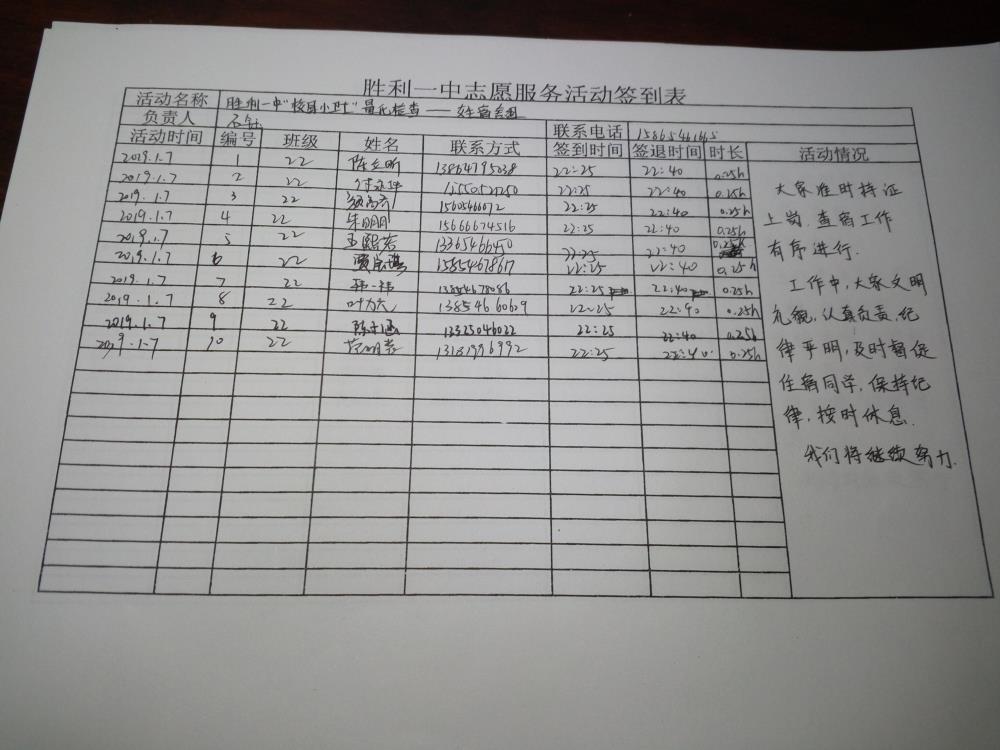 胜利一中志愿服务活动签到表
活动名称 胜利一中"校园小卫士"量化检查——女生宿舍组
负责人 联系电话 15865461665
活动时间 编号 班级 姓名 联系方式 签到时间 签退时间 时长 活动情况
2019.1.7 1 22 13864795038 22:25 22:40 0.25h
2019.1.7 2 22 22:25 22:40 0.25h
2019.1.7 3 22 15605466072 22:25 22:40 0.25h
2019.1.7 4 22 朱明明 15666674516 22:25 22:40 0.25h
2019.1.7 5 22 王熙 13365466450 22:25 22:40 0.25h
2019.1.7 6 22 15854678617 22:25 22:40 0.25h
2019.1.7 7 22 13854678086 22:25 22:40 0.25h
2019.1.7 8 22 13854660609 22:25 22:40 0.25h
2019.1.7 9 22 13325046022 22:25 22:40 0.25h
2019.1.7 10 22 13181996992 22:25 22:40 0.25h
大家准时持证
上岗,查宿工作
有序进行.
工作中,大家文明
礼貌,认真负责,纪
律严明,及时督促
住宿同学,保持纪
律,按时休息.
我们将继续努力.